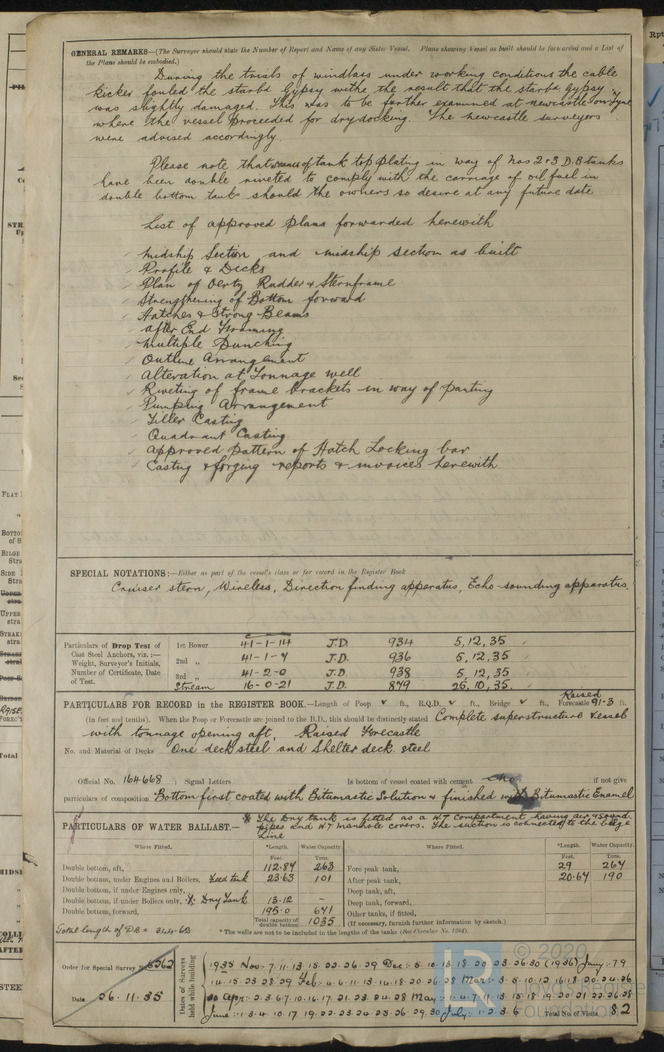 GENERAL REMARKS—(The Surveyor should state the Number of Report and Name of any Sister Vessel. Plans showing Vessel as built should be forwarded and a List of
the Plans should be embodied.)
During the trials of windlass under working conditions the cable
kicker fouled the starbd Gypsy withe the result that the starbd Gypsy
was slightly damaged. This was to be further examined at newcastle on Tyne
where the vessel proceeded for drydocking. The newcastle surveyors
were advised accordingly
Please note that of tank top plating in way of Nos 2 & 3 D.B tanks
have been double riveted to comply with the carriage of oil fuel in
double bottom tank should the owners so desire at any future date
List of approved plans forwarded herewith
Midship Section and midship section as built
Profile & Decks
Plan of Oertz Rudder & Sternframe
Strengthening of Bottom forward
Hatches & Strong Beams
After End Framing
Multiple Punching
Outline Arrangement
Alteration at Tonnage well
Riveting of frame brackets in way of panting
Pumping Arrangement
Tiller Casting
Quadrant Casting
Approved Pattern of Hatch Locking bar
Casting & forging reports & invoices herewith
SPECIAL NOTATIONS:—Either as part of the vessel's class or for record in the Register Book
Cruiser stern, Wireless, Direction finding apparatus, Echo sounding apparatus
Particulars of Drop Test of
Cast Steel Anchors, viz.:—
Weight, Surveyor's Initials,
Number of Certificate, Date
of Test.
1st Bower 41-1-14 J.D. 934 5,12,35
2nd „ 41-1-7 J.D. 936 5,12,35
3rd „ 41-2-0 J.D. 938 5,12,35
Stream 16-0-21 J.D. 879 25,10,35
PARTICULARS FOR RECORD in the REGISTER BOOK.—Length of Poop ft., R.Q.D. ft., Bridge ft., Raised Forecastle 91-3 ft.
(in feet and tenths). When the Poop or Forecastle are joined to the B.D., this should be distinctly stated Complete superstructure vessel
with tonnage opening aft, Raised Forecastle
No. and Material of Decks One deck steel and Shelter deck steel
Official No. 164668 ; Signal Letters Is bottom of vessel coated with cement no if not give
particulars of composition Bottom first coated with Bitumastic Solution & finished with Bitumastic Enamel
* The Dry tank is fitted as a W.T compartment having air & sound
PARTICULARS OF WATER BALLAST.— pipes and W.T manhole covers. The suction is connected to the bilge
Line
Where Fitted. *Length. Water Capacity. Where Fitted. *Length. Water Capacity.
Feet. Tons. Feet. Tons.
Double bottom, aft, 112.87 263
Double bottom, under Engines and Boilers, Feed tank 23.63 101
Double bottom, if under Engines only,
Double bottom, if under Boilers only, * Dry Tank 13.12 -
Double bottom, forward, 195.0 671
Total capacity of double bottom 1035
Fore peak tank, 29 267
After peak tank, 20.67 190
Deep tank, aft,
Deep tank, forward,
Other tanks, if fitted,
(If necessary, furnish further information by sketch.)
Total length of DB = 344.63
* The wells are not to be included in the lengths of the tanks (See Circular No. 1284).
Order for Special Survey No. 5362
Date 26.11.35
Dates of Surveys held while building
1935 Nov: 7.11.13.15.22.26.29 Dec: 5.10.13.18.20.23.26.30 (1936) Jany: 7.9
14.15.23.28.29 Feb: 4.6.11.13.14.18.20.25.26.28 Mar: 3.5.10.12.16.18.20.24.26
30 Apr: 2.3.6.7.10.16.17.21.23.24.28 May: 1.4.7.11.13.15.18.19.20.21.22.26.28
June: 1.3.4.10.17.19.22.23.24.25.26.29.30 July: 1.2.3.6
Total No. of Visits 82
© 2020
Lloyd's Register
Foundation